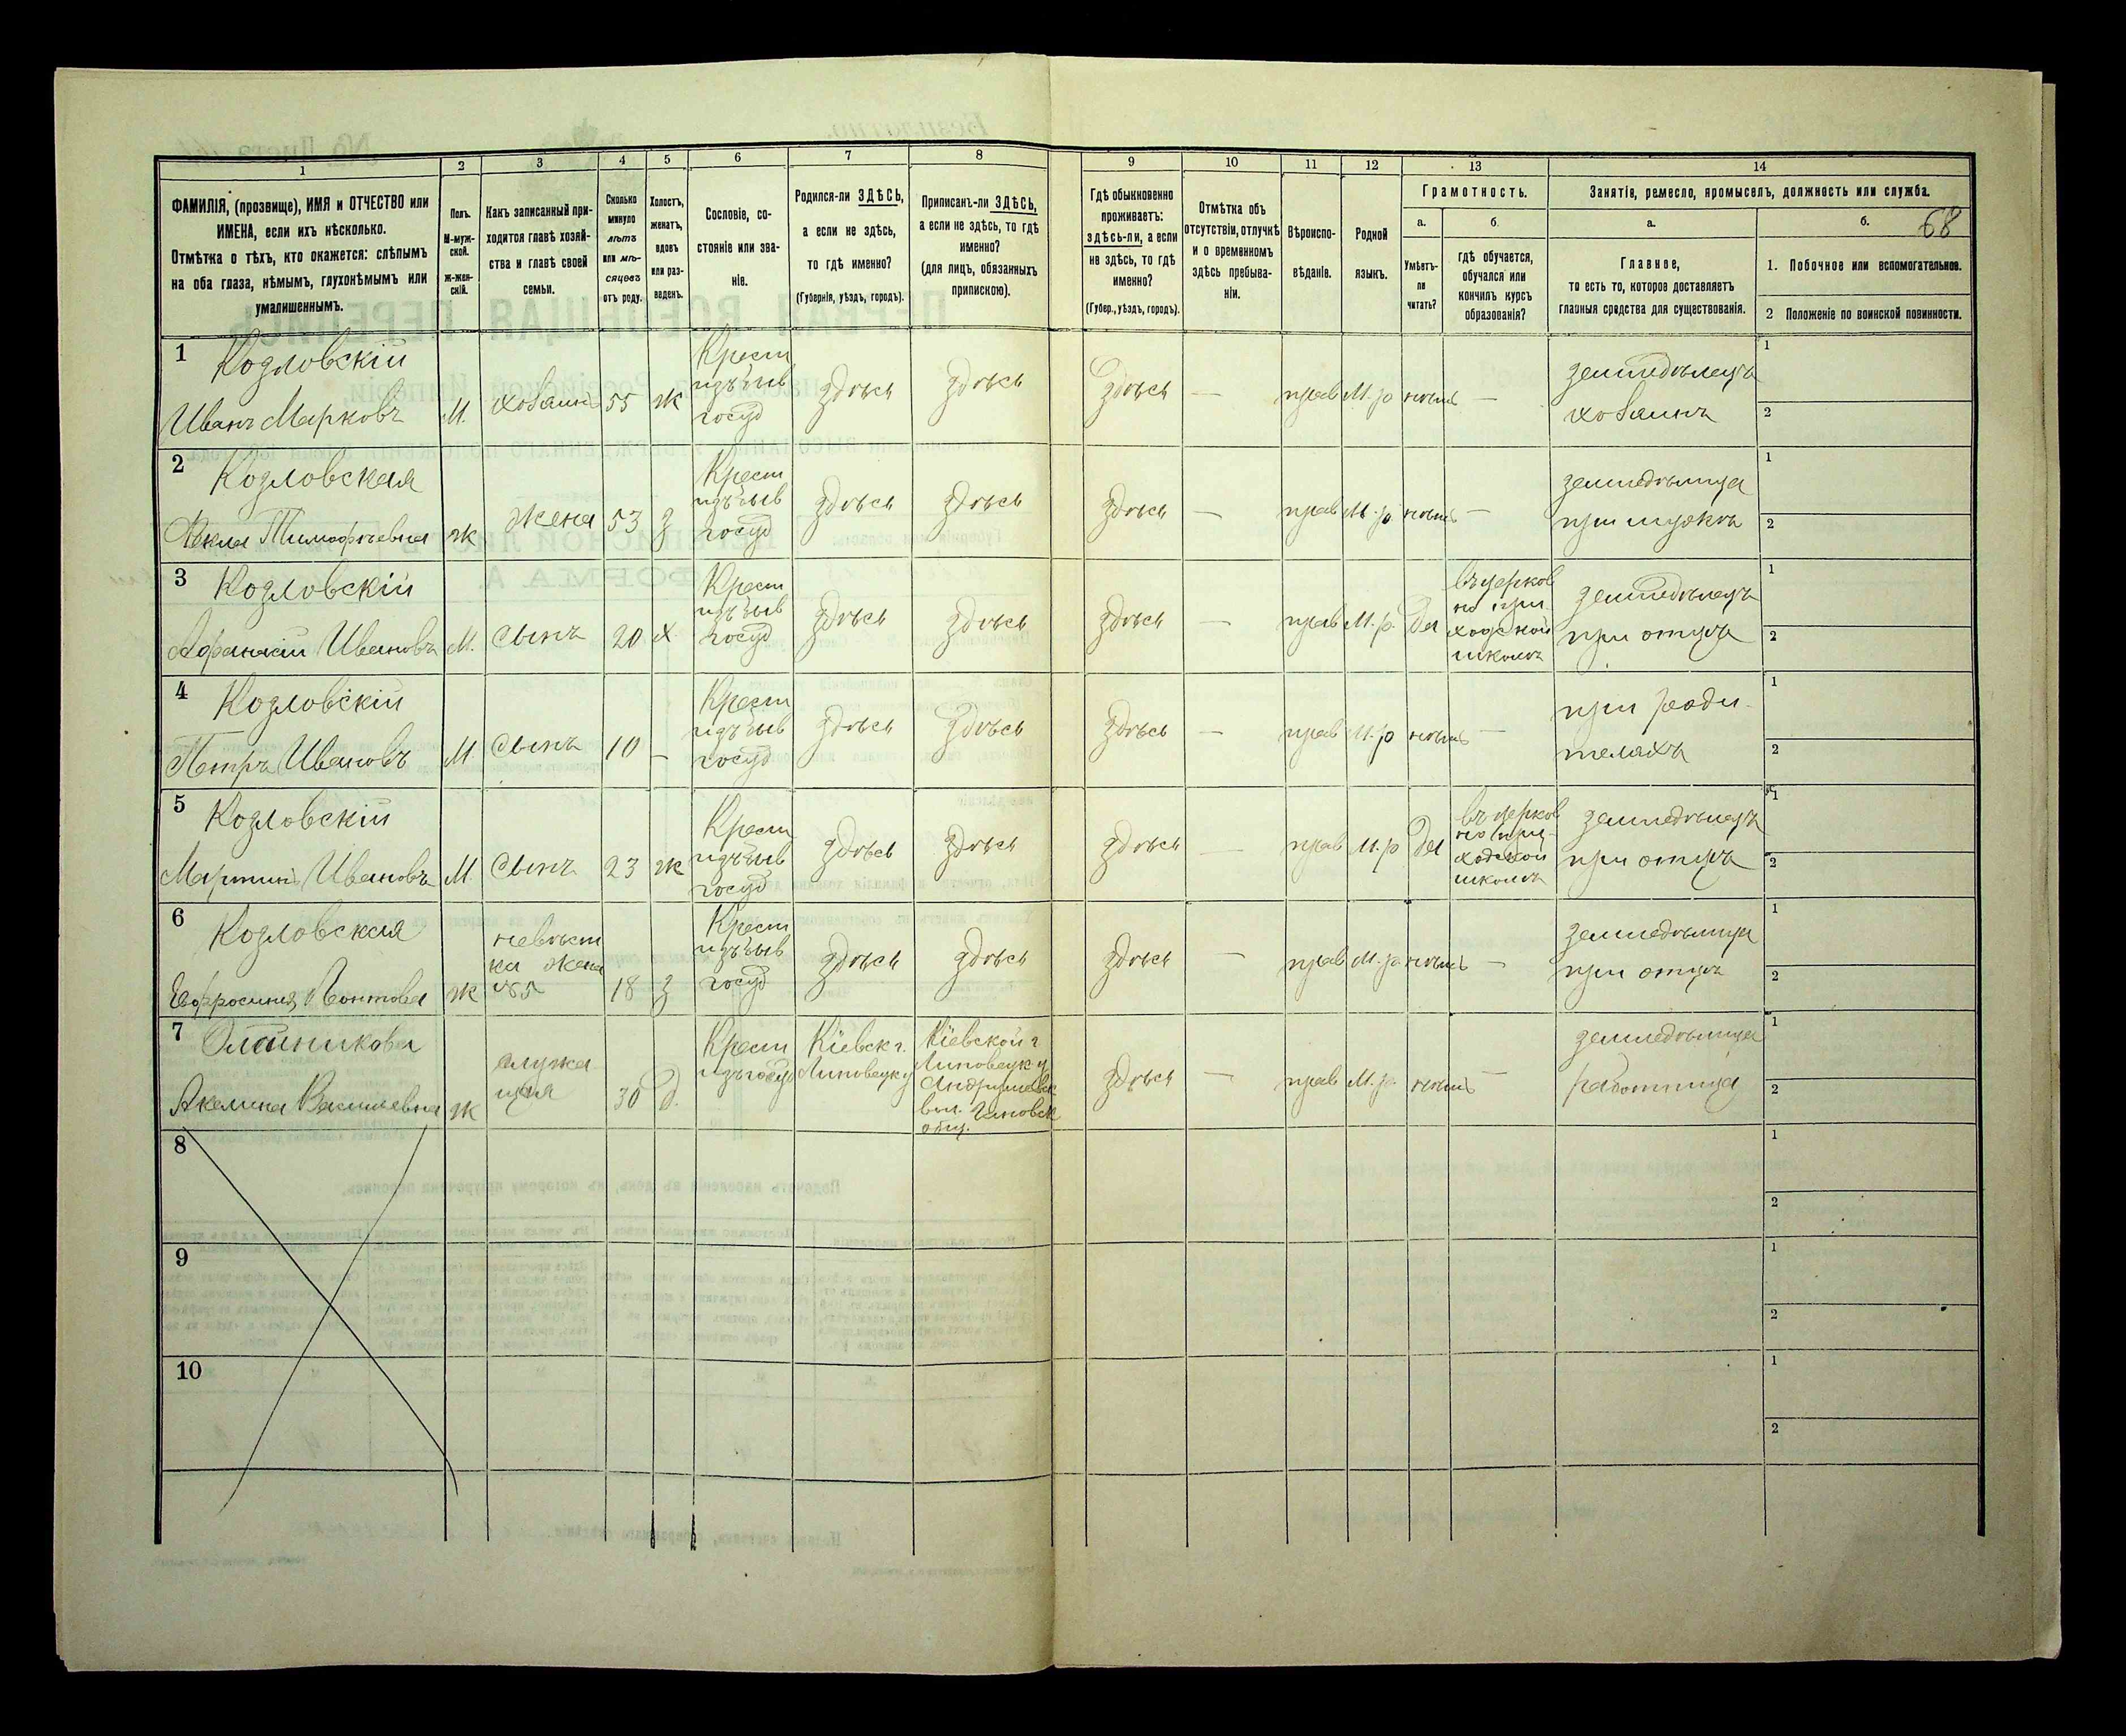 68
1 2 3 4 5 6 7 8 9 10 11 12 13 14
ФАМИЛІЯ, (прозвище), ИМЯ и ОТЧЕСТВО или
ИМЕНА, если ихъ нѣсколько.
Отмѣтка о тѣхъ, кто окажется: слѣпымъ
на оба глаза, нѣмымъ, глухонѣмымъ или
умалишеннымъ.
Полъ.
М-муж-
ской.
Ж-жен-
скій.
Какъ записанный при-
ходится главѣ хозяй-
ства и главѣ своей
семьи.
Сколько
минуло
лѣтъ
или мѣ-
сяцевъ
отъ роду.
Холостъ,
женатъ,
вдовъ
или раз-
веденъ.
Сословіе, со-
стояніе или зва-
ніе.
Родился-ли ЗДѢСЬ,
а если не здѣсь,
то гдѣ именно?
(Губернія, уѣздъ, городъ).
Приписанъ-ли ЗДѢСЬ,
а если не здѣсь, то гдѣ
именно?
(для лицъ, обязанныхъ
припискою).
Гдѣ обыкновенно
проживаетъ:
здѣсь-ли, а если
не здѣсь, то гдѣ
именно?
(Губер., уѣздъ, городъ).
Отмѣтка объ
отсутствіи, отлучкѣ
и о временномъ
здѣсь пребыва-
ніи.
Вѣроиспо-
вѣданіе.
Родной
языкъ.
Грамотность.
а.
Умѣетъ-
ли
читать?
б.
гдѣ обучается,
обучался или
кончилъ курсъ
образованія?
Занятіе, ремесло, промыселъ, должность или служба.
а.
Главное,
то есть то, которое доставляетъ
главныя средства для существованія.
б.
1. Побочное или вспомогательное.
2 Положеніе по воинской повинности.
1
Козловскій
Иванъ Марковъ
М.
хозаинъ
55
ж
Крест
изъ быв
госуд
здѣсь
здѣсь
здѣсь
—
прав
М. р
нѣтъ
—
земледѣлецъ
хозаинъ
1
2
2
Козловская
Ѳекла Тимофѣевна
ж
жена
53
з
Крест
изъ быв
госуд
здѣсь
здѣсь
здѣсь
—
прав
М. р.
нѣтъ
—
земледѣлица
при мужѣ
1
2
3
Козловскій
Афанасій Ивановъ
М.
сынъ
20
х
Крест
изъ быв
госуд
здѣсь
здѣсь
здѣсь
—
прав
М. р.
Да
въ церков
но при
ходской
школѣ
земледѣлецъ
при отцѣ
1
2
4
Козловскій
Петръ Ивановъ
М
сынъ
10
—
Крест
изъ быв
госуд
здѣсь
здѣсь
здѣсь
—
прав
М. р
нѣтъ
—
при роди-
теляхъ
1
2
5
Козловскій
Мартинъ Ивановъ
М.
сынъ
23
ж
Крест
изъ быв
госуд
здѣсь
здѣсь
здѣсь
—
прав
М. р
Да
въ церков
но при-
ходской
школѣ
земледѣлецъ
при отцѣ
1
2
6
Козловская
Ефросинія Леонтова
ж
невѣст
ка жена
№5
18
з
Крест
изъ быв
госуд
здѣсь
здѣсь
здѣсь
—
прав
М. р.
нѣтъ
—
земледѣлица
при отцѣ
1
2
7
Олейникова
Акелина Васильевна
ж
служа
щая
30
д.
Крест
изъ госуд
Кіевск г.
Липовецк у
Кіевской г
Липовецк у
вол.
общ.
здѣсь
—
прав
М. р.
нѣтъ
—
земледѣлица
работница
1
2
8
1
2
9
1
2
10
1
2